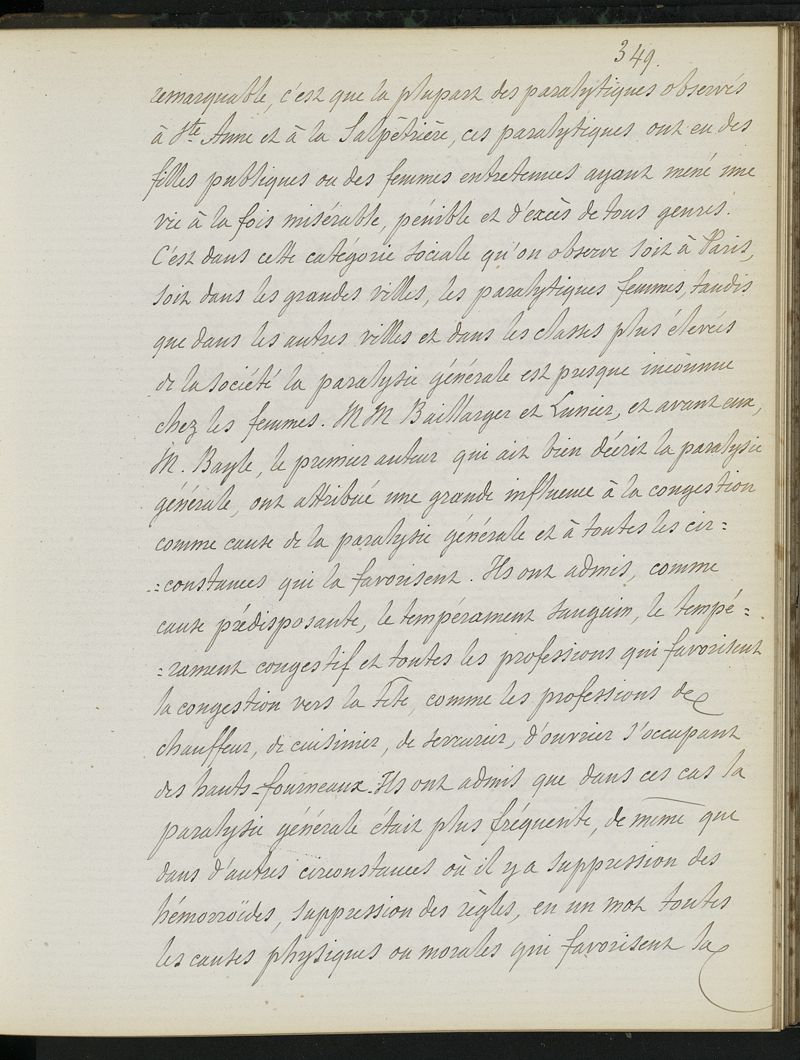 349.
remarquable, c'est que la plupart des paralytiques observés
à Ste Anne et à la Salpêtrière, ces paralytiques ont eu des
filles publiques ou des femmes entretenues ayant mené une
vie à la fois misérable, pénible et d'excès de tous genres.
C'est dans cette catégorie sociale qu'on observe soit à Paris,
soit dans les grandes villes, les paralytiques femmes, tandis
que dans les autres villes et dans les classes plus élevées
de la société la paralysie générale est presque inconnue
chez les femmes. MM Baillarger et Lunier, et avant eux,
M. Bayle, le premier auteur qui ait bien décrit la paralysie
générale, ont attribué une grande influence à la congestion
comme cause de la paralysie générale et à toutes les cir=
=constances qui la favorisent. Ils ont admis, comme
cause prédisposante, le tempérament sanguin, le tempé=
=rament congestif et toutes les professions qui favorisent
la congestion vers la tête, comme les professions de
chauffeur, de cuisinier, de serrurier, d'ouvrier s'occupant
des hauts-fourneaux. Ils ont admis que dans ces cas la
paralysie générale était plus fréquente, de même que
dans d'autres circonstances où il y a suppression des
hémorroïdes, suppression des règles, en un mot toutes
les causes physiques ou morales qui favorisent la